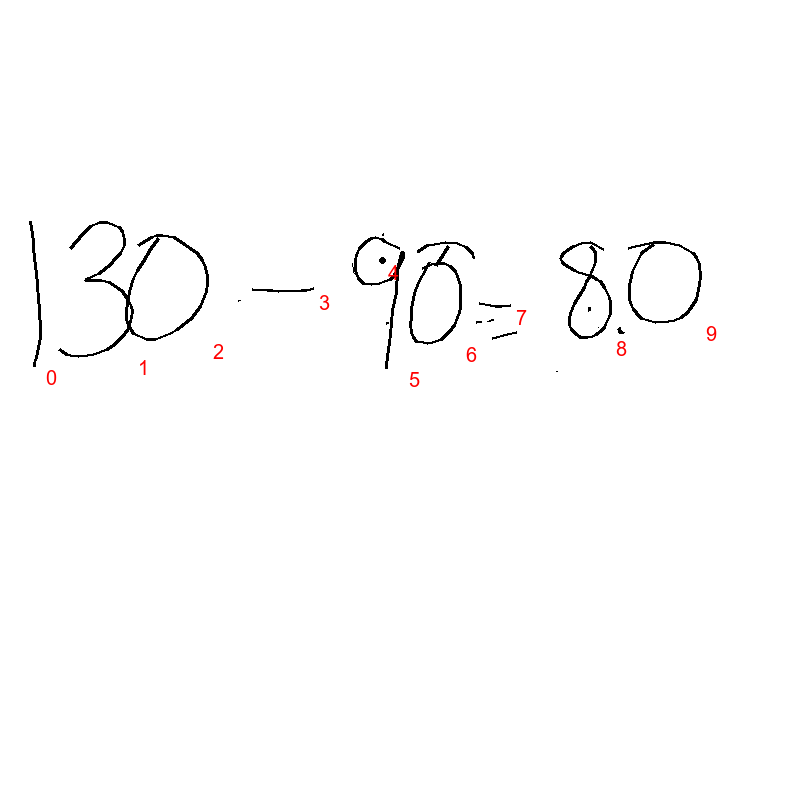 130 — 90 = 80
0 1 2 3 4 5 6 7 8 9